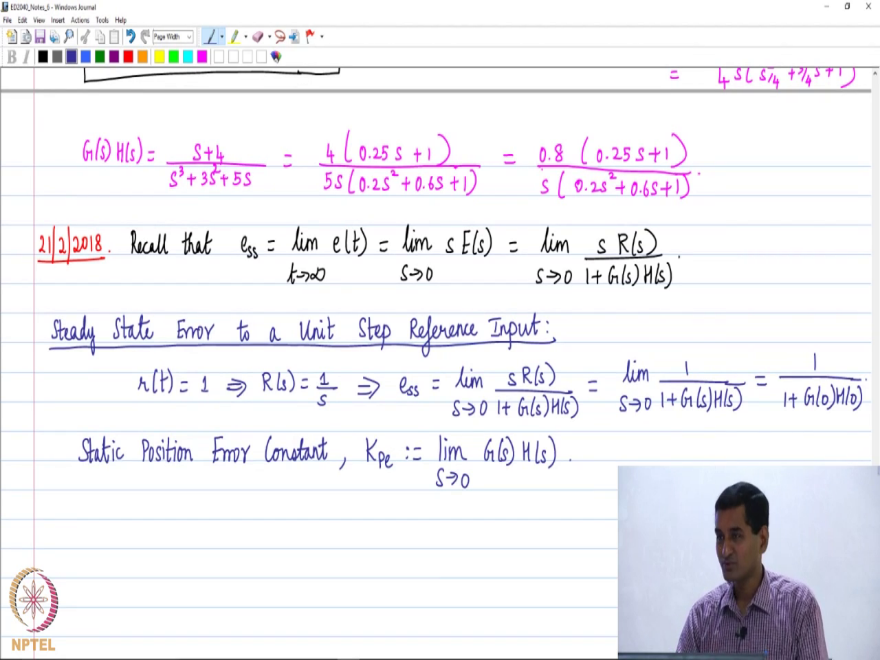 ED2040_Notes_6 - Windows Journal
File Edit View Insert Actions Tools Help
Page Width
B I
= 4 s(s²/4 + 3/4 s + 1)
G(s) H(s) = (s+4)/(s³+3s²+5s) = 4(0.25s+1)/(5s(0.2s²+0.6s+1)) = 0.8(0.25s+1)/(s(0.2s²+0.6s+1)).
21/2/2018. Recall that e_ss = lim_{t→∞} e(t) = lim_{s→0} s E(s) = lim_{s→0} s R(s)/(1+G(s)H(s)).
Steady State Error to a Unit Step Reference Input:
r(t) = 1 ⇒ R(s) = 1/s ⇒ e_ss = lim_{s→0} s R(s)/(1+G(s)H(s)) = lim_{s→0} 1/(1+G(s)H(s)) = 1/(1+G(0)H(0)).
Static Position Error Constant, K_pe := lim_{s→0} G(s) H(s).
NPTEL